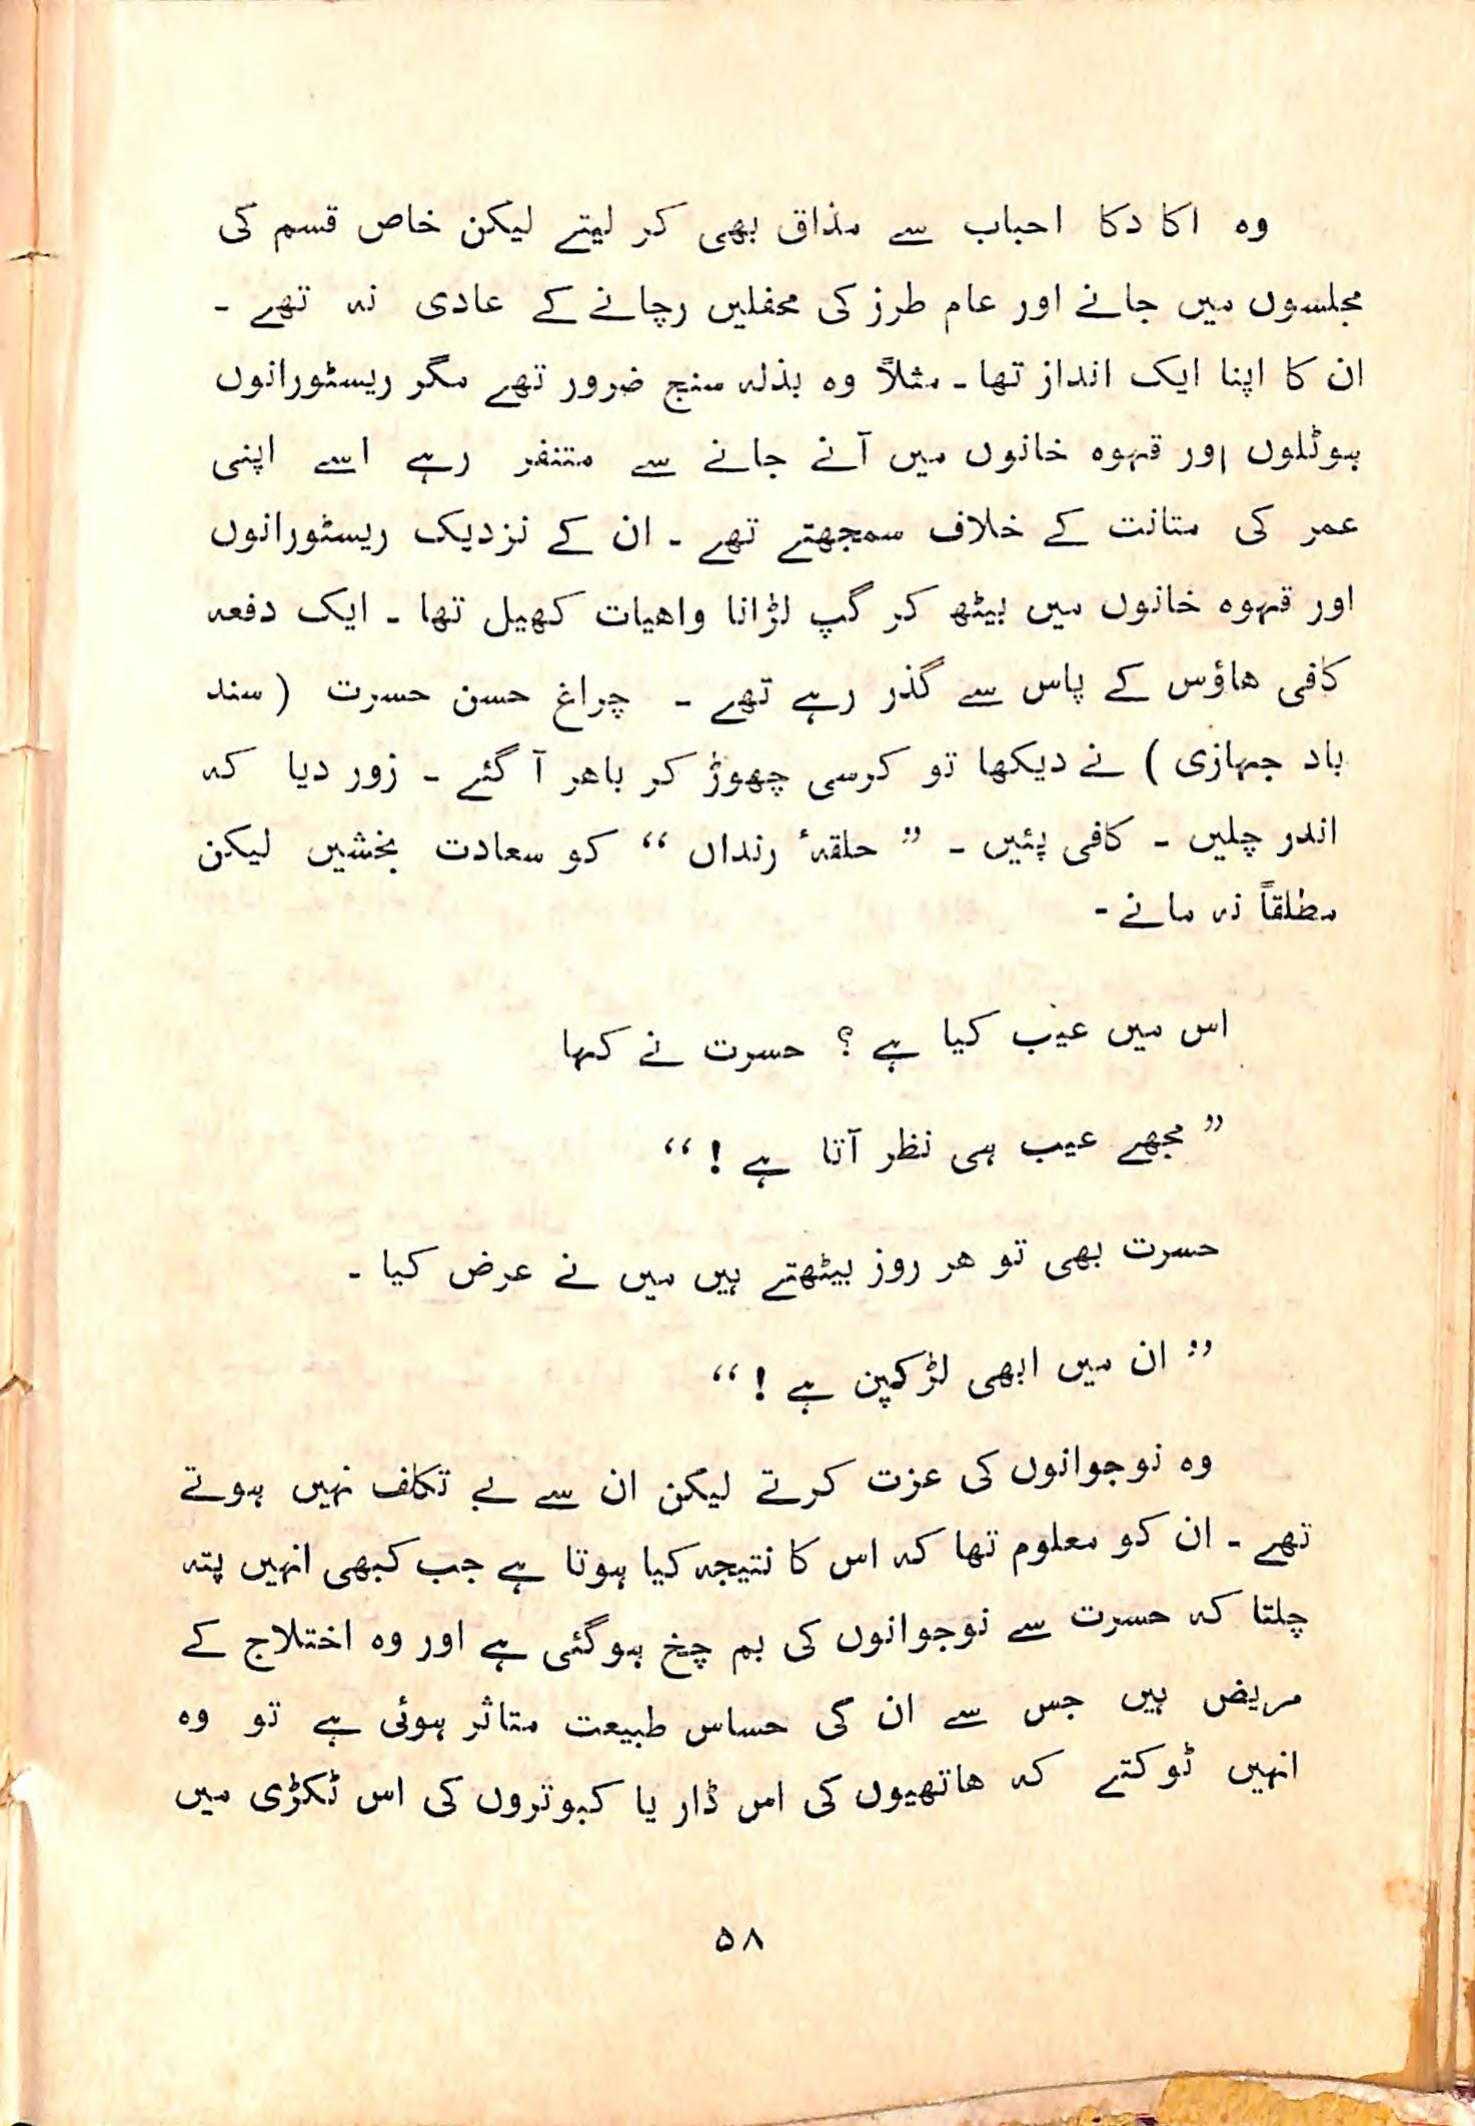 وہ اکا دکا احباب سے مذاق بھی کر لیتے لیکن خاص قسم کی
مجلسوں میں جانے اور عام طرز کی محفلیں رچانے کے عادی نہ تھے ۔
ان کا اپنا ایک انداز تھا ۔ مثلاً وہ بذلہ سنج ضرور تھے مگر ریسٹورانوں
ہوٹلوں اور قہوہ خانوں میں آنے جانے سے متنفر رہے اسے اپنی
عمر کی متانت کے خلاف سمجھتے تھے ۔ ان کے نزدیک ریسٹورانوں
اور قہوہ خانوں میں بیٹھ کر گپ لڑانا واھیات کھیل تھا ۔ ایک دفعہ
کافی ھاؤس کے پاس سے گذر رہے تھے ۔ چراغ حسن حسرت ( سند
باد جہازی ) نے دیکھا تو کرسی چھوڑ کر باھر آ گئے ۔ زور دیا کہ
اندر چلیں ۔ کافی پئیں ۔ ” حلقۂ رنداں “ کو سعادت بخشیں لیکن
مطلقاً نہ مانے ۔
اس میں عیب کیا ہے ؟ حسرت نے کہا
” مجھے عیب ہی نظر آتا ہے ! “
حسرت بھی تو ھر روز بیٹھتے ہیں میں نے عرض کیا ۔
” ان میں ابھی لڑکپن ہے ! “
وہ نوجوانوں کی عزت کرتے لیکن ان سے بے تکلف نہیں ہوتے
تھے ۔ ان کو معلوم تھا کہ اس کا نتیجہ کیا ہوتا ہے جب کبھی انہیں پتہ
چلتا کہ حسرت سے نوجوانوں کی بم چخ ہوگئی ہے اور وہ اختلاج کے
مریض ہیں جس سے ان کی حساس طبیعت متاثر ہوئی ہے تو وہ
انہیں ٹوکتے کہ ھاتھیوں کی اس ڈار یا کبوتروں کی اس ٹکڑی میں
۵۸